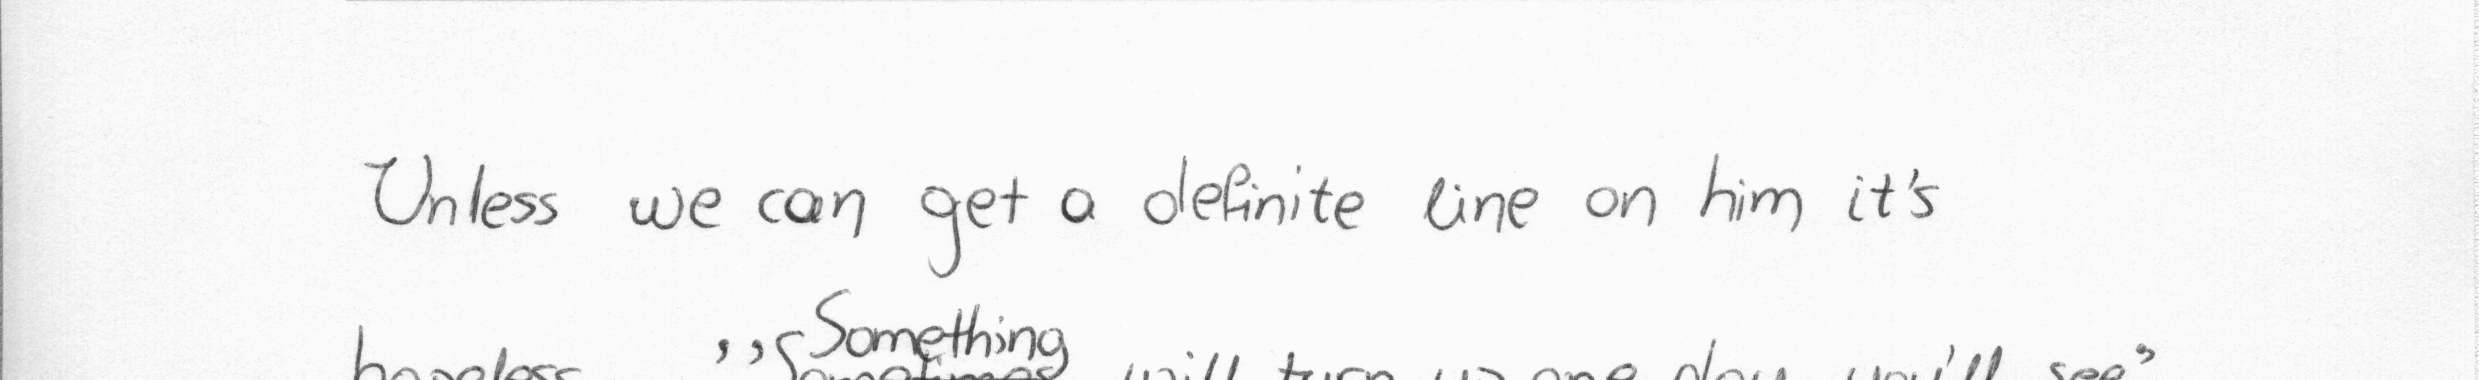 Unless we can get a definite line on him it's
hopeless. ,,Something will turn up one day you'll see"